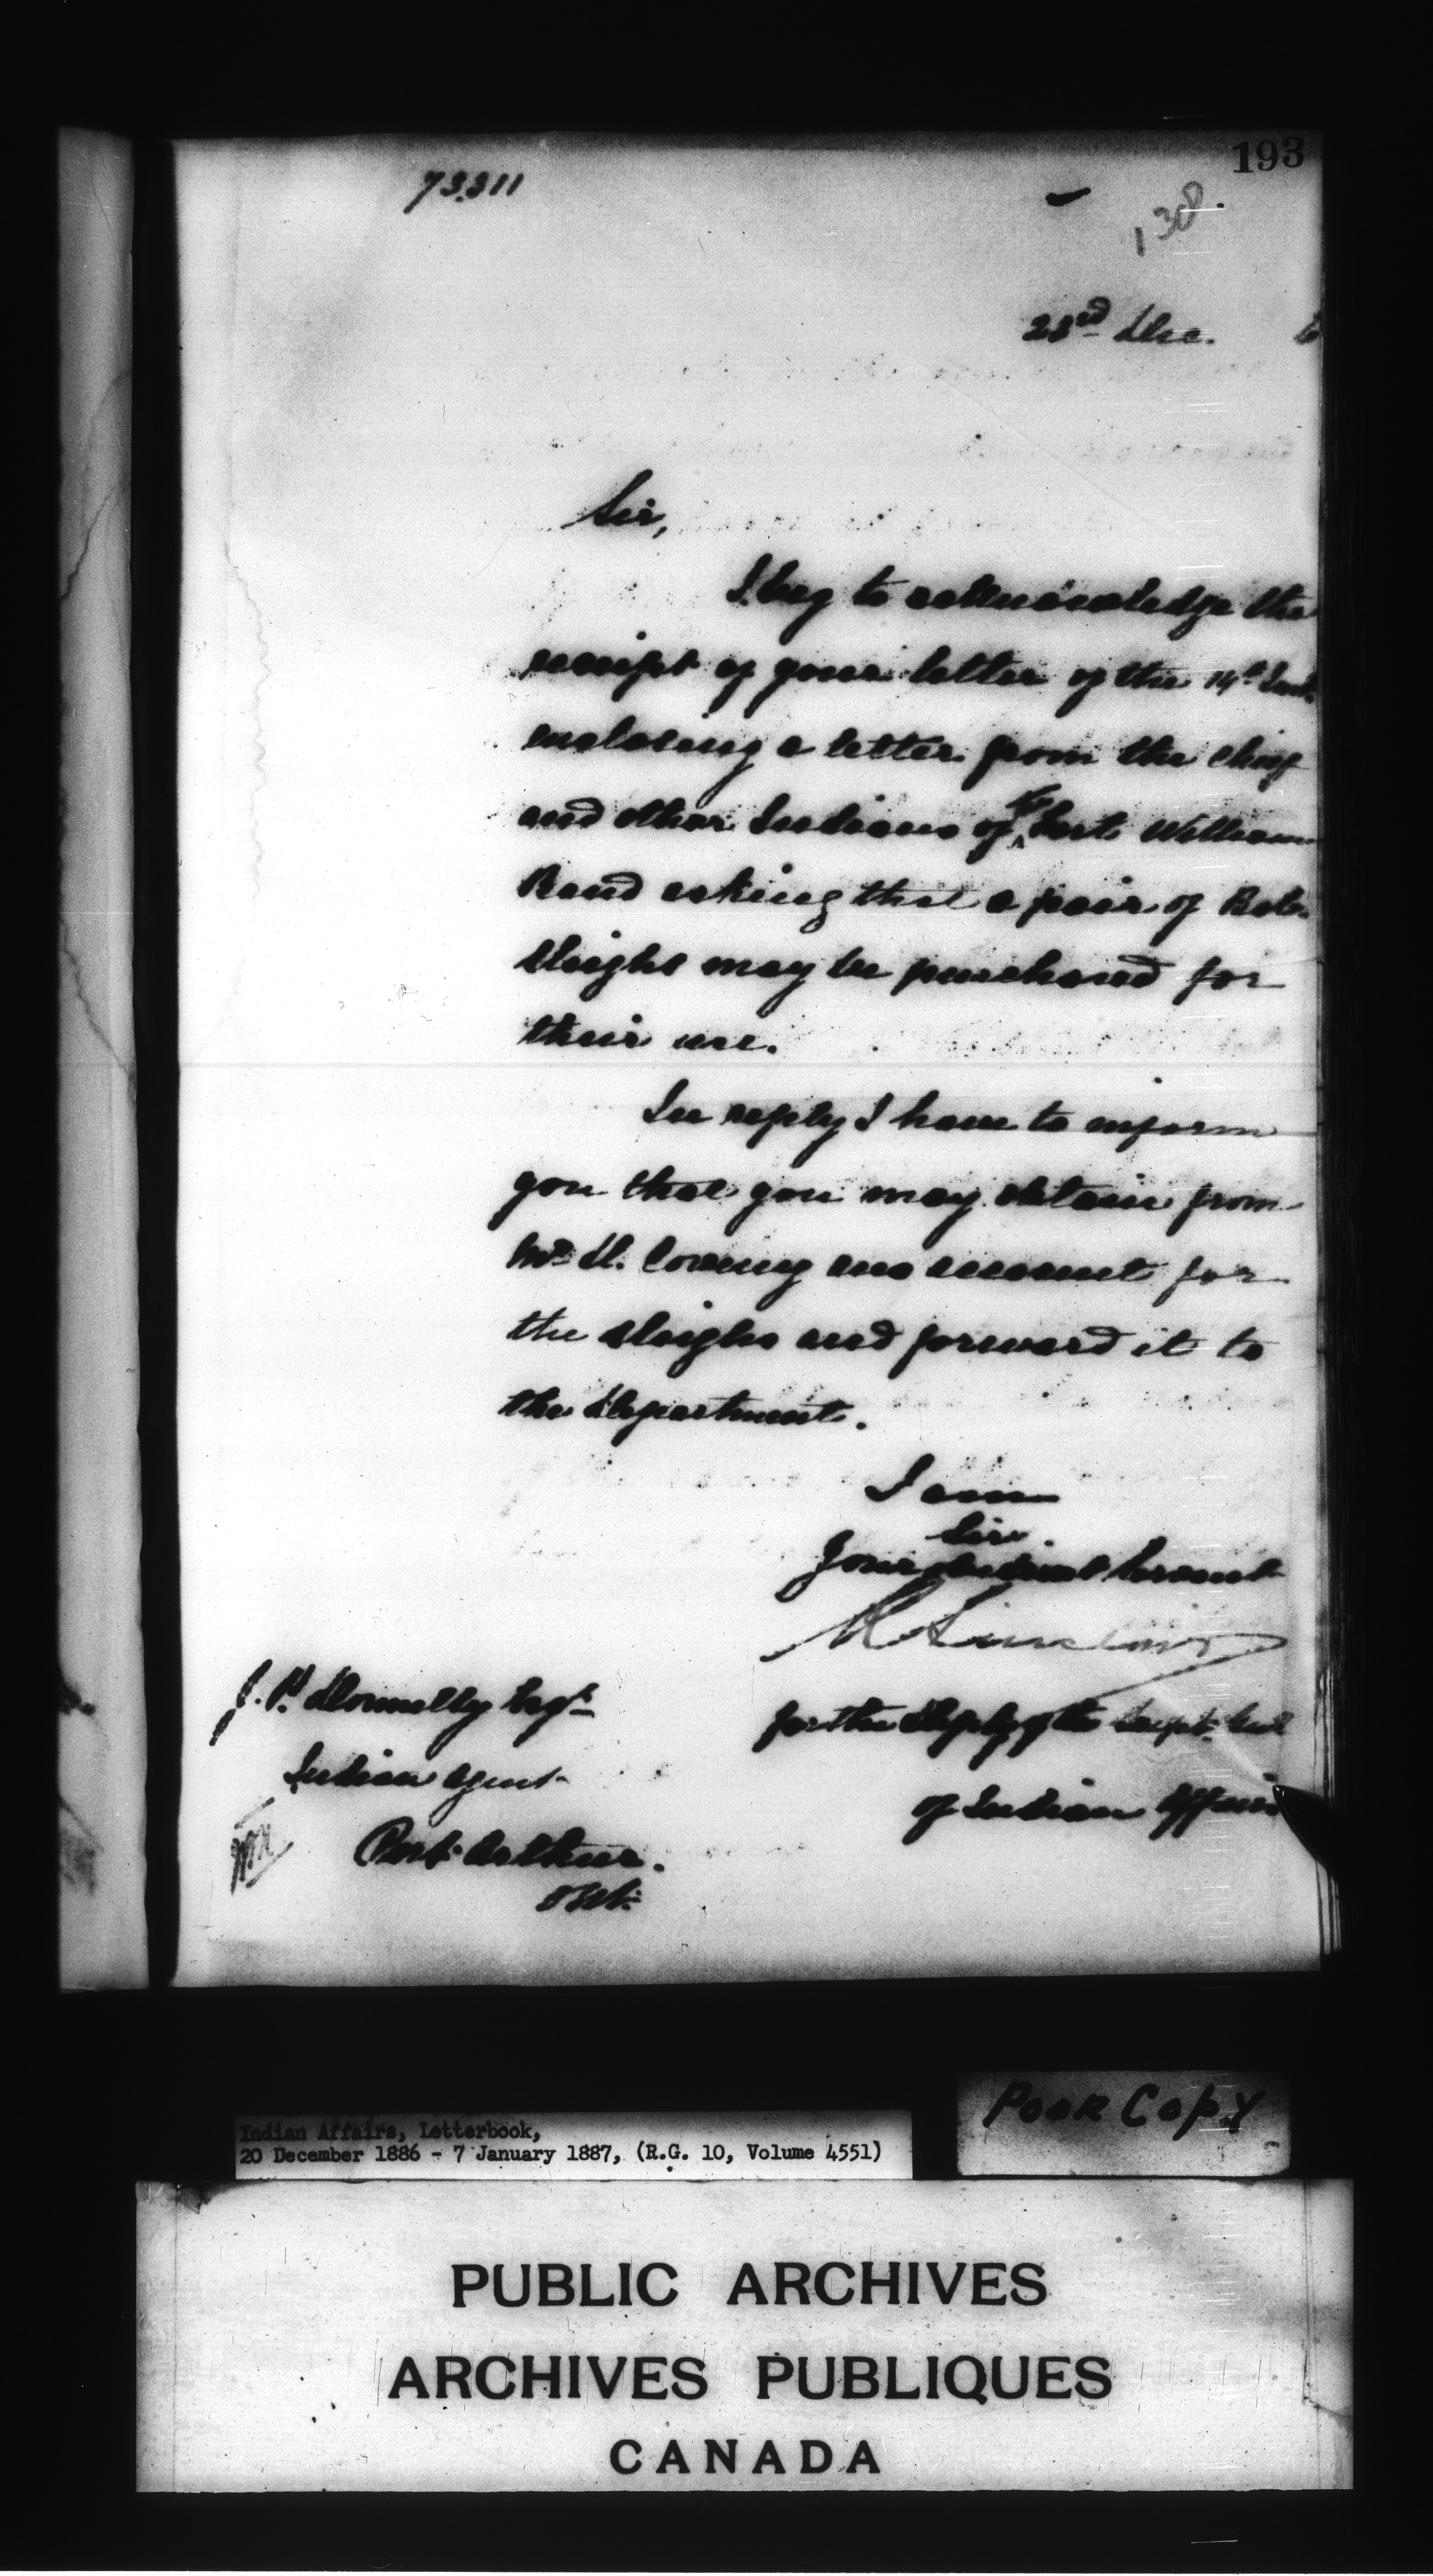 193
73.311
138
23rd Dec. 6
Sir,
I beg to acknowledge the
receipt of your letter of the 14th Inst.
enclosing a letter from the Chief
and other Indians of the Fort William
Band asking that a pair of Bob-
sleighs may be purchased for
their use.
In reply I have to inform
you that you may obtain from
Mr. account for
the sleighs and forward it to
the Department.
I am
Sir
Your obedient Servant
R Sinclair
for the Deputy of the Supt. Genl
of Indian Affairs
J. P. Donnelly Esqr
Indian Agent
Port Arthur.
Ont.
Poor Copy
Indian Affairs, Letterbook,
20 December 1886 - 7 January 1887, (R.G. 10, Volume 4551)
PUBLIC ARCHIVES
ARCHIVES PUBLIQUES
CANADA